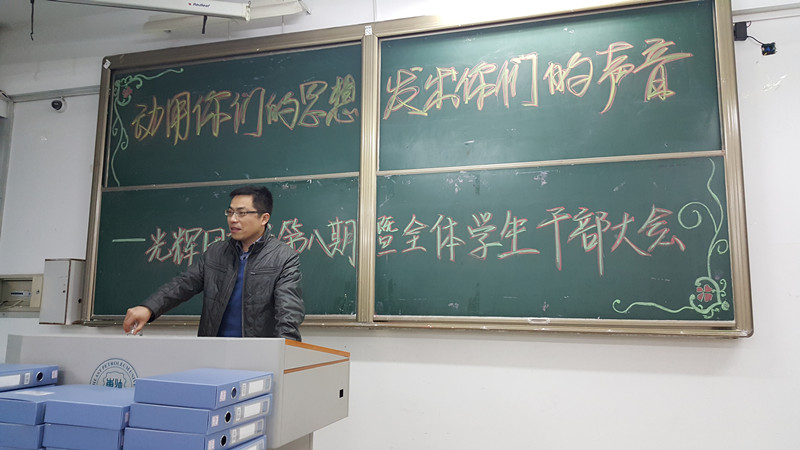 动用你们的思想 发出你们的声音
——光辉 第八期暨全体学生干部大会